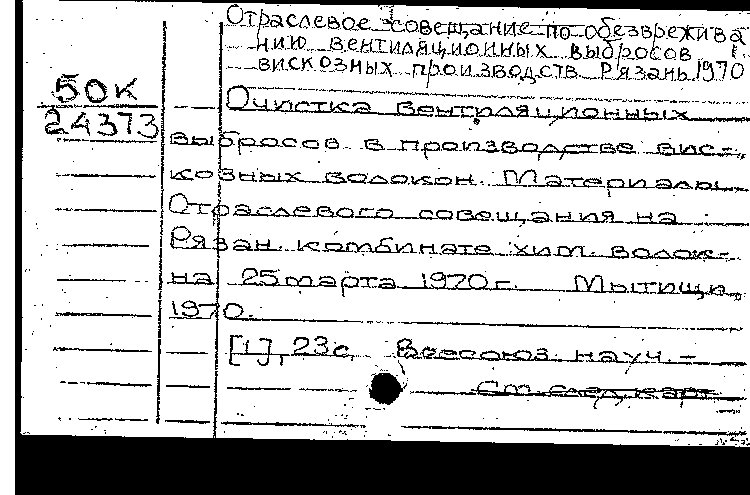 Отраслевое совещание по обезврежива
нию вентиляционных выбросов
вискозных производств Рязань 1970
50К
24373
Очистка вентиляционных
выбросов в производстве вис-
козных волокон. Материалы
Отраслевого совещания на
Рязан. комбинате хим. волок-
на 25 марта 1970 г. Мытищи,
1970.
[1], 23с. Всесоюз. науч. -
См. след. карт